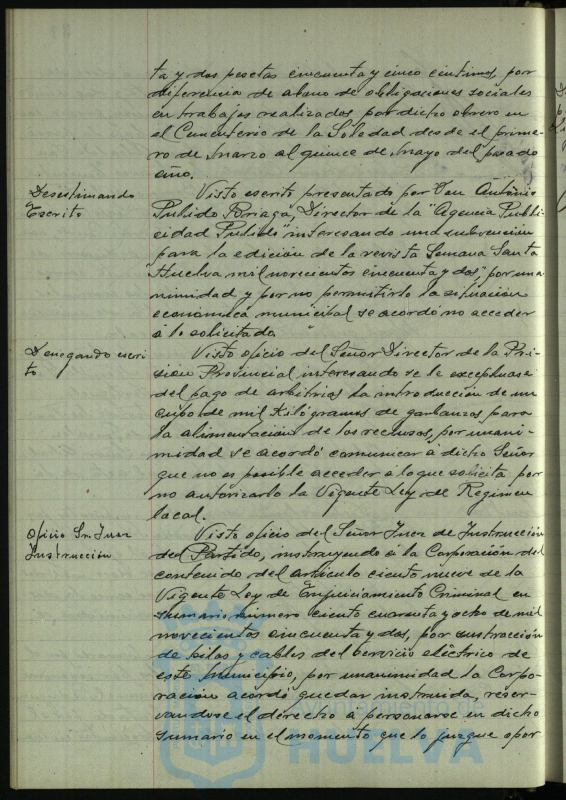 ta y dos pesetas cincuenta y cinco centimos, por
diferencia de abono de obligaciones sociales
en trabajos realizados por dicho obrero en
el Cementerio de la Soledad desde el prime-
ro de Marzo al quince de Mayo del pasado
año.
Desestimando
Escrito
Visto escrito presentado por Don António
Pulido Briaga, Director de la "Agencia Publi
cidad Pulido" interesando una subvención
para la edición de la revista Semana Santa
"Huelva mil novecientos cincuenta y dos", por una
nimidad y por no permitirlo la situacion
económica municipal se acordó no acceder
á lo solicitado.
Denegando escri
to
Visto oficio del Señor Director de la Pri-
sion Provincial interesando se le exceptuase
del pago de arbitrios la introducción de un
cupo de mil Kilógramos de garbanzos para
la alimentación de los reclusos, por unani-
midad se acordó comunicar á dicho Señor
que no es posible acceder á lo que solicita por
no autorizarlo la Vigente Ley de Regimen
local.
Oficio Sr. Juez
Instrucción
Visto oficio del Señor Juez de Instrucción
del Partido, instruyendo á la Corporación del
contenido del artículo ciento nueve de la
Vigente Ley de Enjuiciamiento Criminal en
sumario número ciento cuarenta y ocho de mil
novecientos cincuenta y dos, por sustracción
de pilas y cables del Servicio eléctrico de
este Municipio, por unanimidad la Corpo-
racion acordó quedar instruida, reser-
vandose el derecho á personarse en dicho
sumario en el momento que lo juzgue opor
Ayuntamiento de
HUELVA